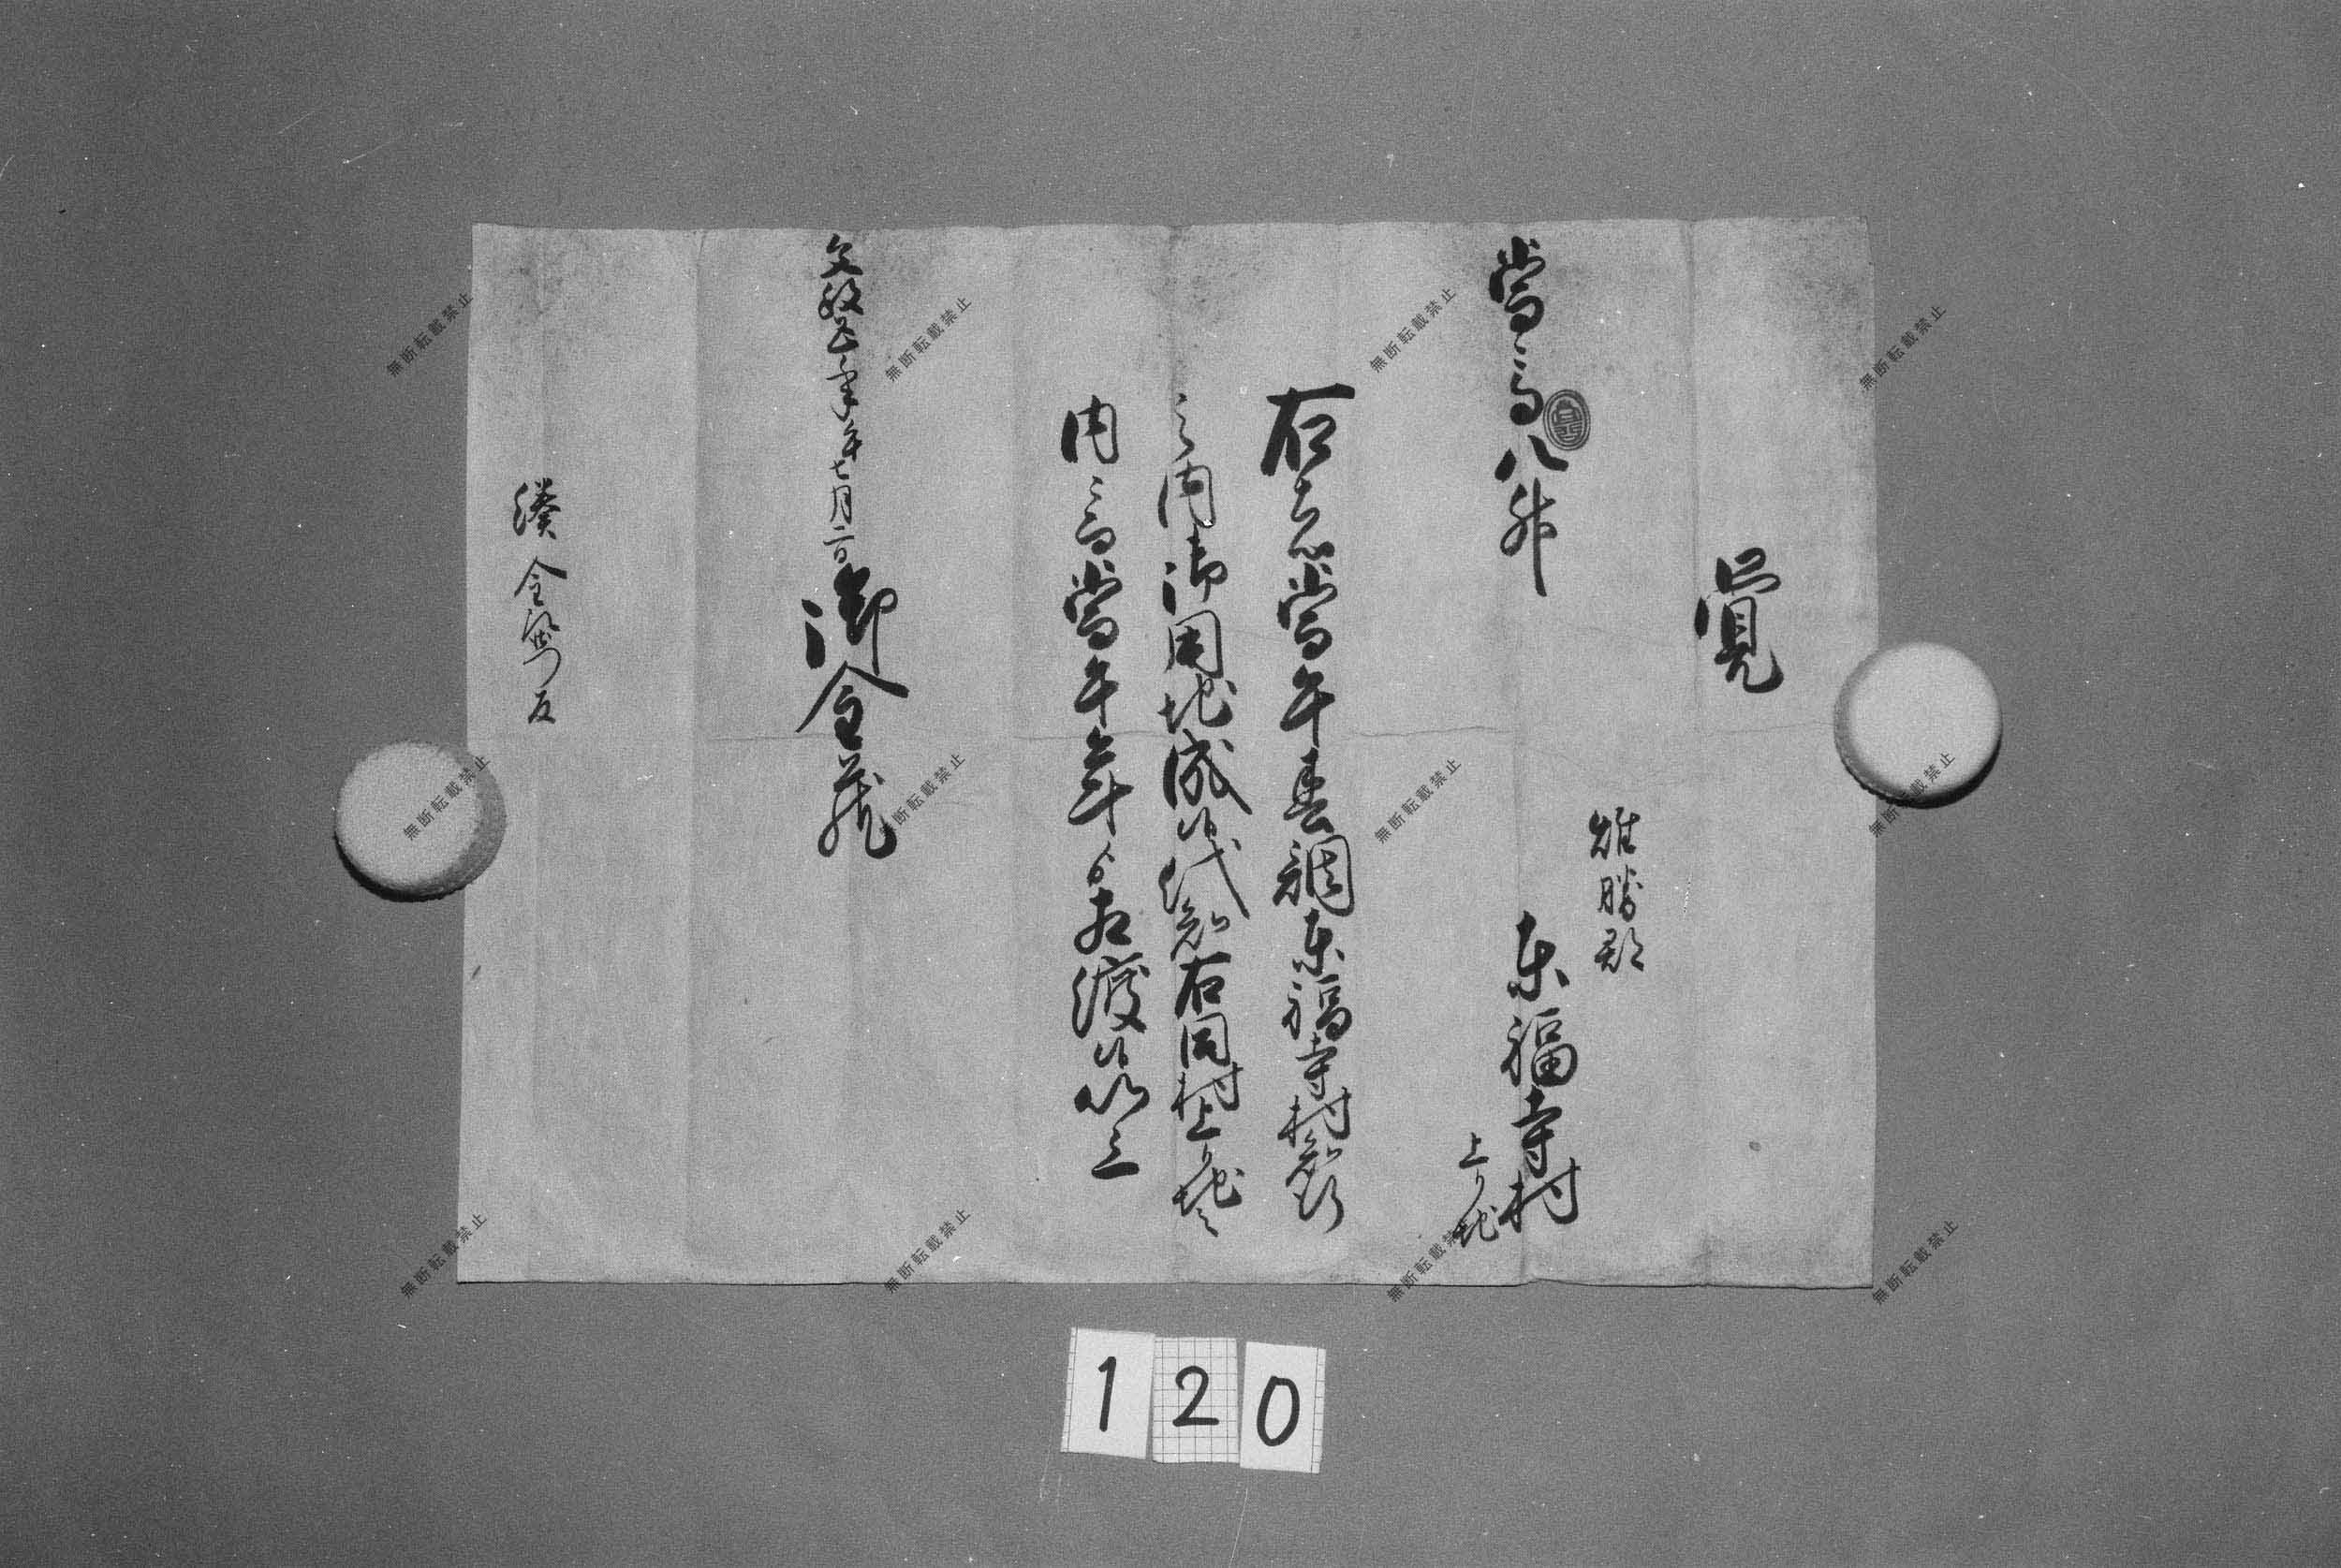 覺
雄勝郡
當高八升
東福寺村
上り地
右者當午春調東福寺村給分
之内御用地成候代給右同村上り地之
内ニ而當午年ゟ相渡候以上
文政五年午七月二日
御金蔵
湊
120
無断転載禁止
無断転載禁止
無断転載禁止
無断転載禁止
無断転載禁止
無断転載禁止
無断転載禁止
無断転載禁止
無断転載禁止
無断転載禁止
無断転載禁止
無断転載禁止